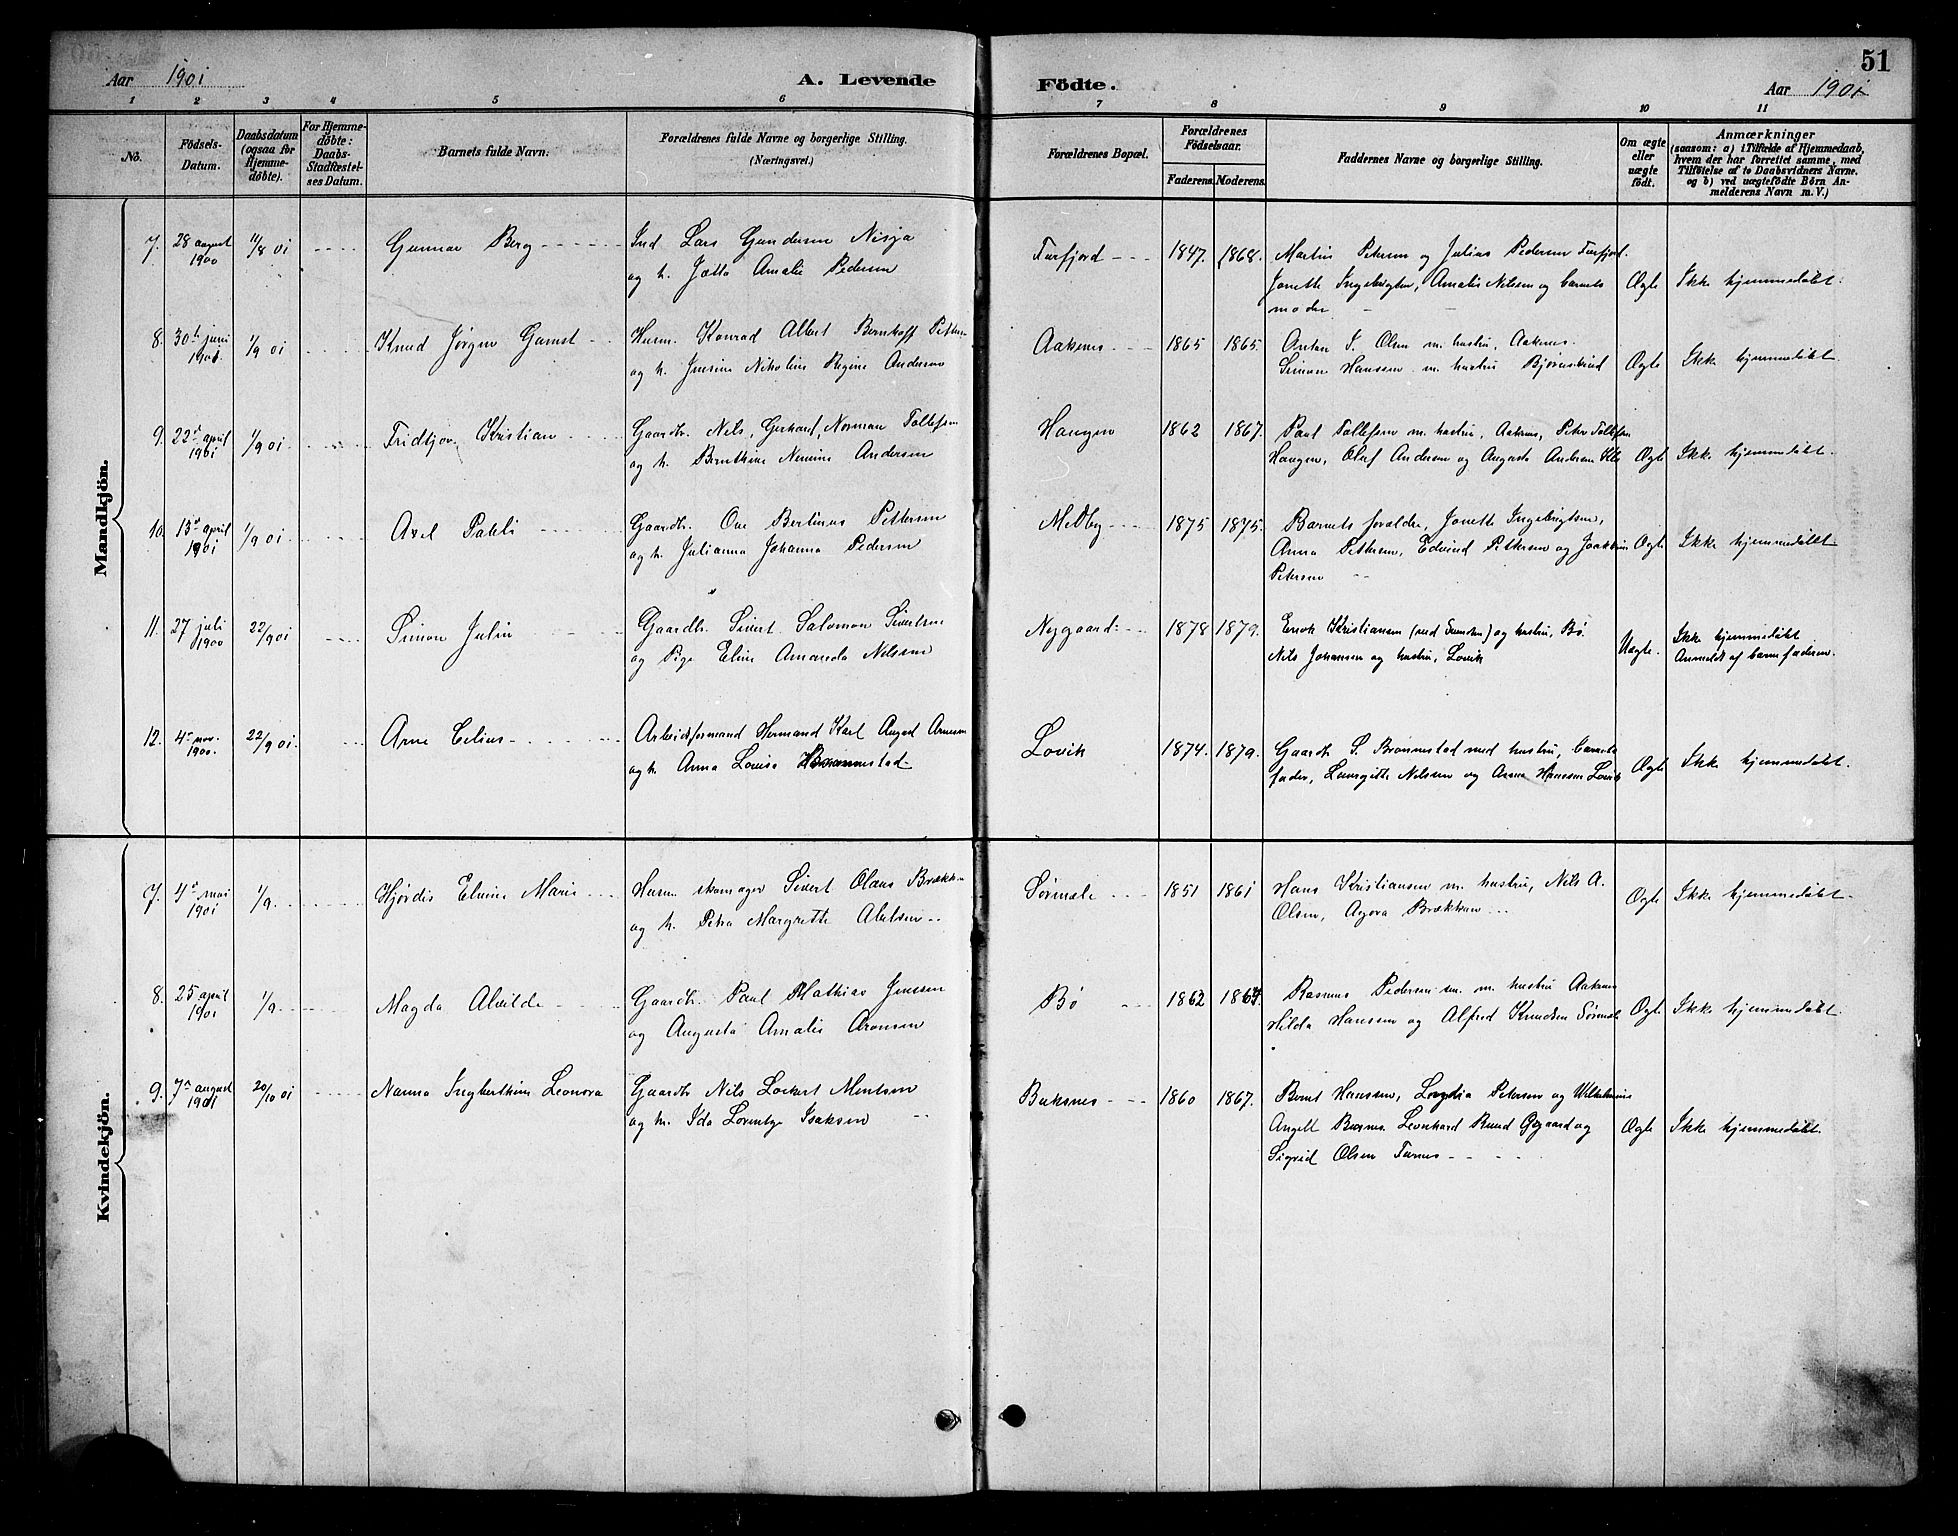 Aar 1901
A. Levende
Födte.
51
Aar 1901
1 2 3 4 5 6 7 8 9 10 11
No.
Födsels-
Datum.
Daabsdatum
(ogsaa for
Hjemme-
døbte).
For Hjemme-
døbte:
Daabs-
Stadfæstel-
ses Datum.
Barnets fulde Navn.
Forældrenes fulde Navne og borgerlige Stilling.
(Næringsvei.)
Forældrenes Bopæl.
Forældrenes
Fødselsaar.
Faderens. Moderens.
Faddernes Navne og borgerlige Stilling.
Om ægte
eller
uægte
født.
Anmærkninger
(saasom: a) i Tilfælde af Hjemmedaab,
hvem der har forrettet samme, med
Tilføielse af to Daabsvidners Navne.
og b) ved uægtefødte Børn An-
melderens Navn m. V.)
Mandkjön.
7. 28 august 1900 11/8 01 Gunnar Berg Ind. Lars Gundersen Nisja
og h. Jætta Amalie Pedersen
Furfjord 1847. 1868. Martin Petersen og Julius Pedersen Furfjord.
Jonette Ingebrigtsen, Amalie Nilsen og barnets
moder
Ægte Ikke hjemmedøbt.
8. 30te juni 1901 1/9 01 Knud Jørgen Gamst Husm. Konrad Albert Bernhoff Petters.
og h. Jensine Nikoline Regine Andersen
Aaknes 1865 1865. Anton S. Olsen m. hustru, Aaknes.
Simon Hanssen m. hustru Bjørnskind
Ægte Ikke hjemmedøbt
9. 22d april 1901 1/9 01 Fridtjov Kristian Gaardbr. Nils, Gerhard, Norman Tollefsen
og h. Bernthine Nennine Andersen
Haugen 1862 1867. Paul Tollefsen m. hustru, Aaknes, Peter Tollefsen
Haugen, Oluf Andersen og Augusta Andersen
Ægte Ikke hjemmedøbt.
10. 13d april 1901 1/9 01 Axel Palli Gaardbr. Ove Berlinus Pettersen
og h. Julianna Johanna Pedersen
Medby 1875 1875. Barnets forælder, Jonette Ingebrigtsen,
Anna Pettersen, Edvind Pettersen og Joakkim
Petersen
Ægte Ikke hjemmedøbt
11. 27 juli 1900 22/9 01 Simon Julin Gaardbr. Sivert Salomon Sivertsen
og Pige Eline Amanda Nilssen
Nygaard 1878 1879. Enok Kristiansen (med hustru) og hustru, Bø.
Nils Johansen og hustru, Lovik
Uægte. Ikke hjemmedøbt
Anmeldt af barnefaderen.
12. 4de nov. 1900. 22/9 01. Arne Celius Arbeidsformand Hermand Karl August Arnesen
og h. Anna Lovisa Brønnestad
Lovik 1874. 1879. Gaardb. S. Brønnestad med hustru, barnets
fader, Lauregitte Nilssen og Anna Hanssen Lovik
Ægte Ikke hjemmedøbt.
Kvindekjön.
7. 4de mai 1901 1/9. Hjørdis Elvine Marie Husm. skomager Sivert Olaus Brækkan
og h. Petra Margrethe Abelsen
Sørmele 1851 1861 Hans Kristiansen m. hustru, Nils A.
Olsen, Agora Brækkan
Ægte Ikke hjemmedøbt.
8. 25 april 1901 1/9. Magda Alvilde Gaardb. Paul Mathias Jensen
og Augusta Amalie Aronsen
Bø 1862 1864. Rasmus Pedersen m. hustru Aaknes
Hilda Hanssen og Alfred Knudsen Sørmele
Ægte Ikke hjemmedøbt.
9. 7de august 1901 20/10 01 Nanna Ingberthine Leonora Gaardb. Nils Lockert Mentsen
og h. Ida Lorentze Isaksen
Buksnes 1860 1867. Bernt Hanssen, Lovdia Petersen og Wilhelmine
Angell Buksnes. Leonhard Rund Ø.gaard og
Sigrid Olsen Furnes
Ægte Ikke hjemmedøbt.